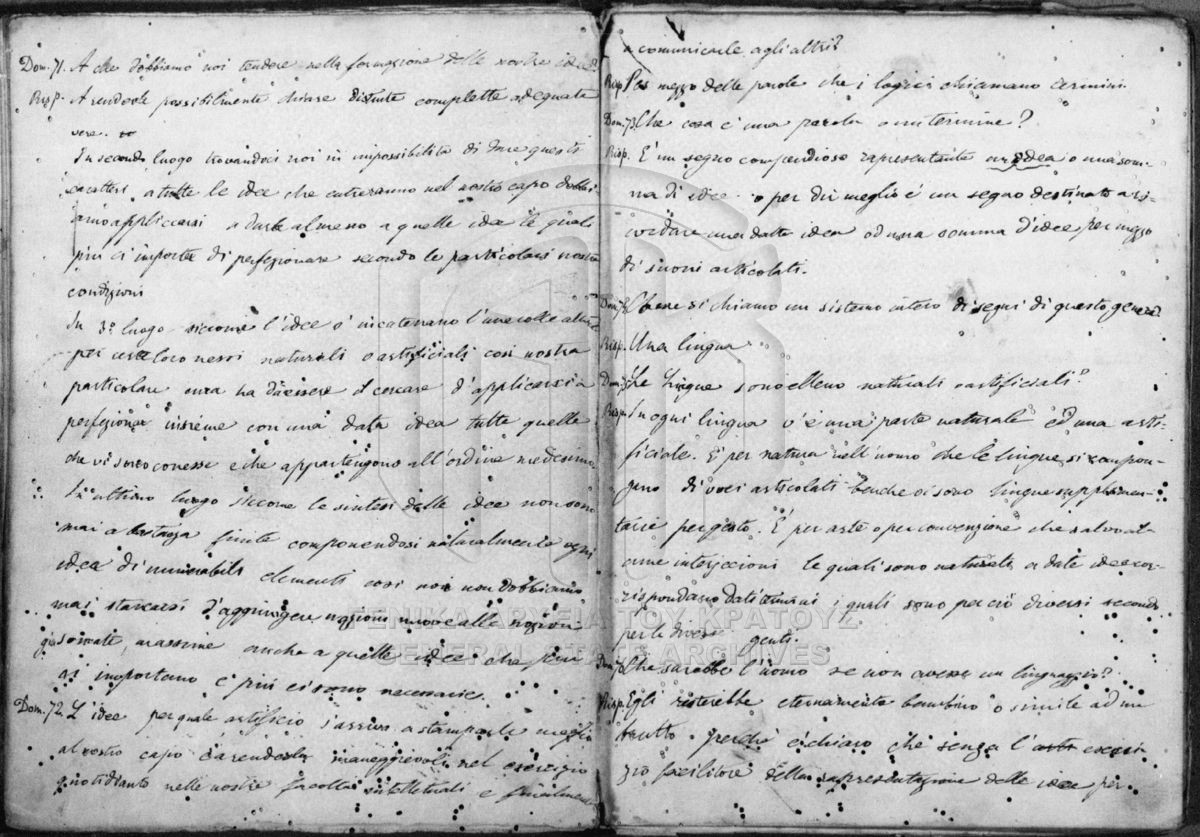 Dom. 71. A che dobbiamo noi tendere nella formazione delle nostre idee?
Risp. A renderle possibilmente chiare distinte complette adequate
vere.
In secondo luogo trovandoci noi in impossibilita di dare questi
caratteri a tutte le idee che entreranno nel nostro capo dobbi-
amo appliccarsi a darle almeno a quelle idee le quali
piu ci importa di perfezionare secondo le particolari nostre
condizioni
In 3º luogo siccome l'idee s' incatenano l'une colle altre
per certe loro nessi naturali o artificiali cosi nostra
particolare cura ha da essere di cercare d'applicarsi a
perfezionar insieme con una data idea tutte quelle
che vi sono conesse e che appartengono all'ordine medesimo
In ultimo luogo siccome le sintesi delle idee non sono
mai a bastanza finite componendosi naturalmente ogni
idea di innumerabili elementi cosi noi non dobbiamo
mai stancarsi d'aggiungere nozioni nuove alle nozioni
gia formate, massime anche a quelle idee che piu
ci importano e piu ci sono necessarie.
Dom. 72. L'idee per quale artificio s'arriva a stamparle meglio
al nostro capo a renderle maneggievoli nel esercizio
quotidianto nelle nostre facolta intelletuali e finalmente
a comunicarle agli altri?
Risp. Per mezzo delle parole che i logici chiamano termini
Dom. 73. Che cosa è una parola o un termine?
Risp. È un segno compendioso rapresentante un idea o una som-
ma di idee o per dir meglio é un segno destinato a ri-
cordare una datta idea od una somma d'idee per mezzo
di suoni articolati.
Dom. 74. Come si chiamo un sistemo intero di segni di questo genere?
Risp. Una lingua
Dom. 75. Le lingue sono elleno naturali o artificiali?
Risp. In ogni lingua v'é una parte naturale ed una arti-
ficiale. È per natura nell'uomo che le lingue si compon-
gano di voci articolati benche vi sono lingue supplimen-
tarie per gesto. È per arte o per convenzione che salvo al-
cune interjezioni le quali sono naturali a date idee cor-
rispondano dati termini i quali sono perciò diversi secondo
per le diverse genti.
Dom. 76. Che sarebbe l'uomo se non avesse un linguaggio?
Risp. Egli resterebbe eternamente bambino o simile ad un
brutto perche é chiaro che senza l' eserci-
zio facilitore della rapresentazione delle idee per
ΓΕΝΙΚΑ ΑΡΧΕΙΑ ΤΟΥ ΚΡΑΤΟΥΣ
GENERAL STATE ARCHIVES